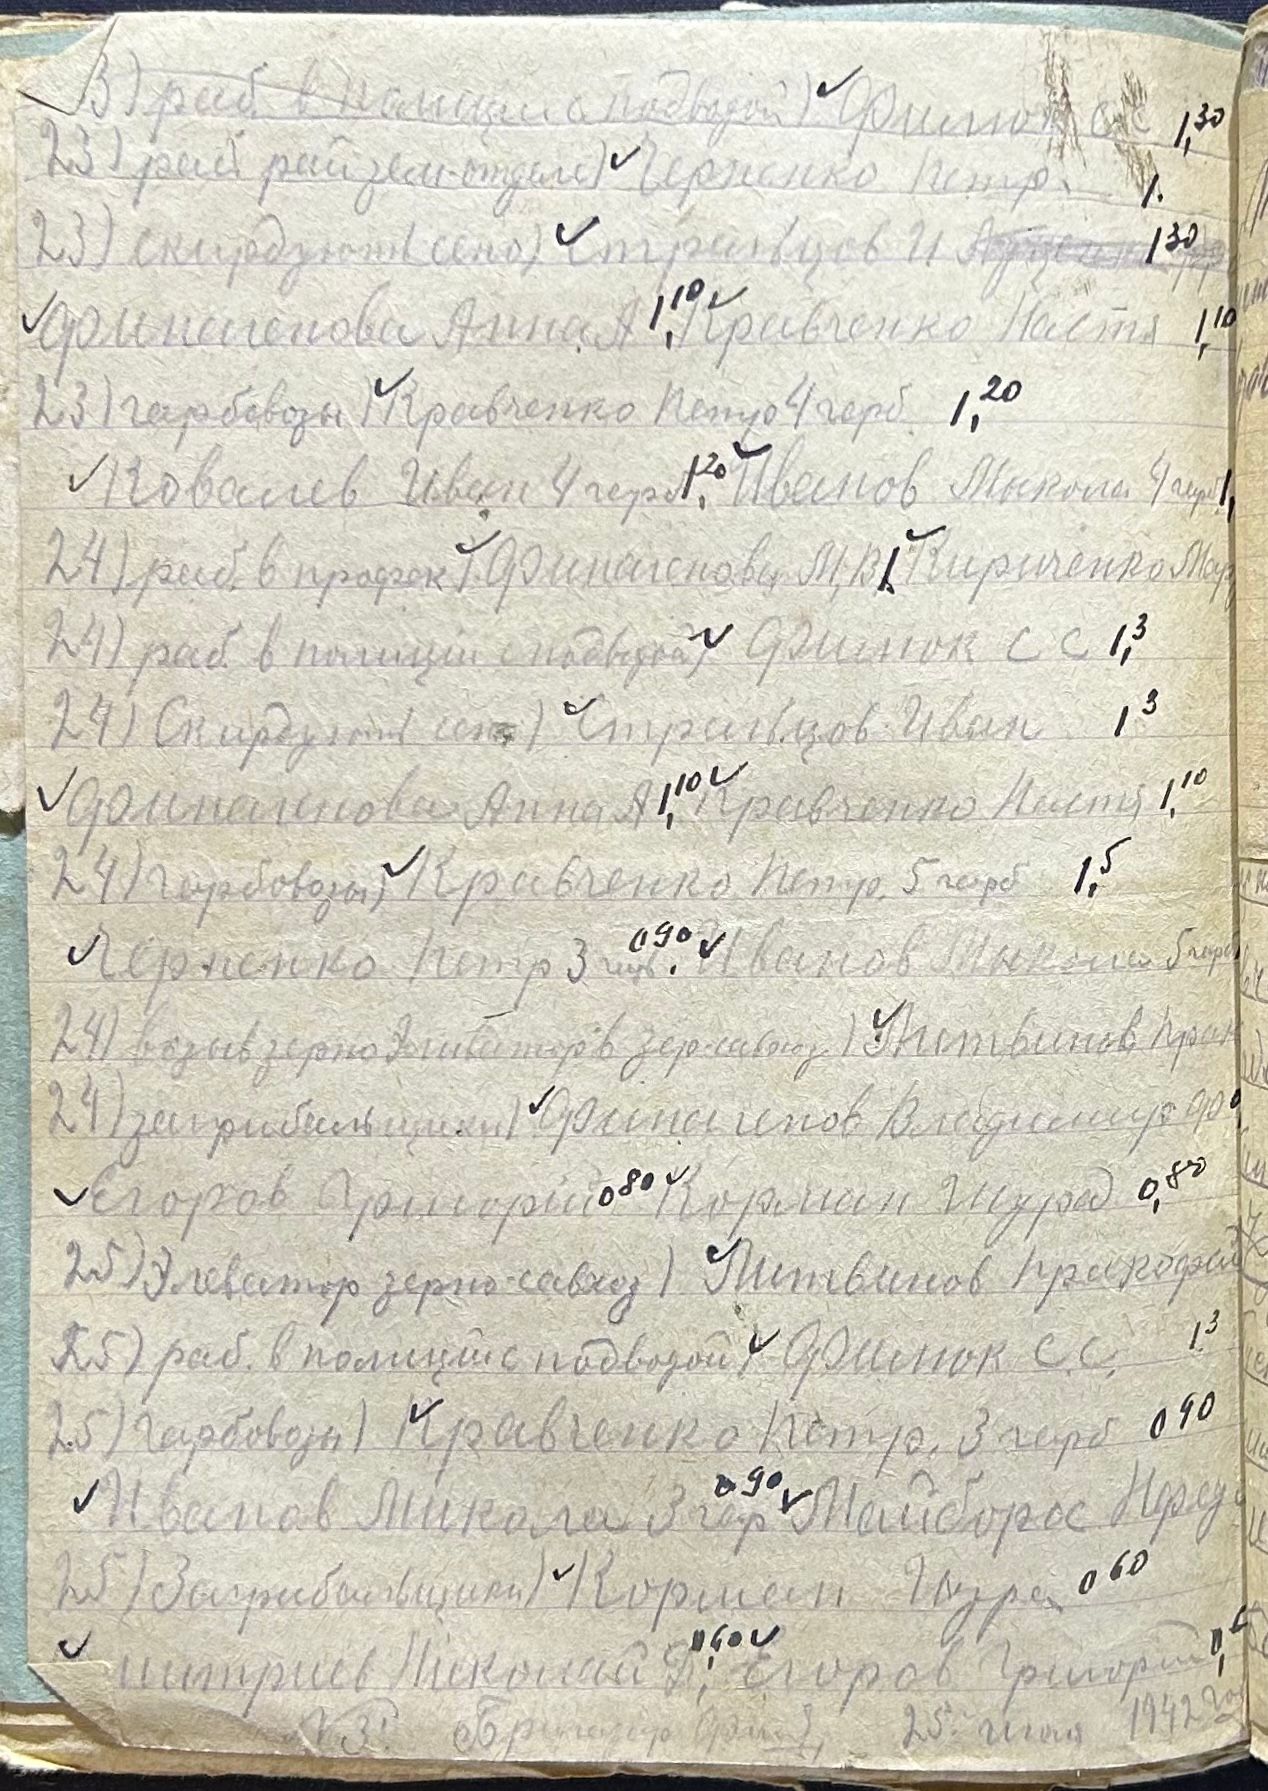 3) раб. в полиции с подводой) Филюк С С 1,30
23) раб. райземотделе) Черненко Петр. 1.
23) скирдують сено) Стрельцов И 1 30
Финагенова Анна А 1,10 Кравченко Настя 1,10
23) гарбовозы) Кравченко Петро 4 гарб. 1,20
Ковалев Иван 4 гарб 1,20 Иванов Мыкола 4 гарб 1,
24) раб. в Финагенова М.В. 1. Кириченко Мар
24) раб. в полиции с подводой) Филюк С С 1,3
24) Скирдують сено) Стрельцов Иван 1 3
Финагенова Анна А 1,10 Кравченко Настя 1,10
24) гарбовозы) Кравченко Петр. 5 гарб 1,5
Черненко Петр 3 гарб. 0 90 Иванов Мыкола 5 гарб
24) зерно Элеватор в зерсавхоз) Литвинов Прак
24) загрибальщики) Финагенов Владимир Ф 0
Егоров Григорий 0 80 Корман Шура 0,80
25) Элеватор зерно-савхоз) Литвинов Пракофий
25) раб. в полиции с подводой) Филюк С.С. 1.3
25) гарбовозы) Кравченко Петр. 3 гарб 0 90
Иванов Микола 3 гар 0 90 Майборов
25) Загрибальщики) Корман Шура 0 60
митриев Николай П, 0,60 Егоров Григорий 0,
№ 3. Бригадир 25. июля 1942 год